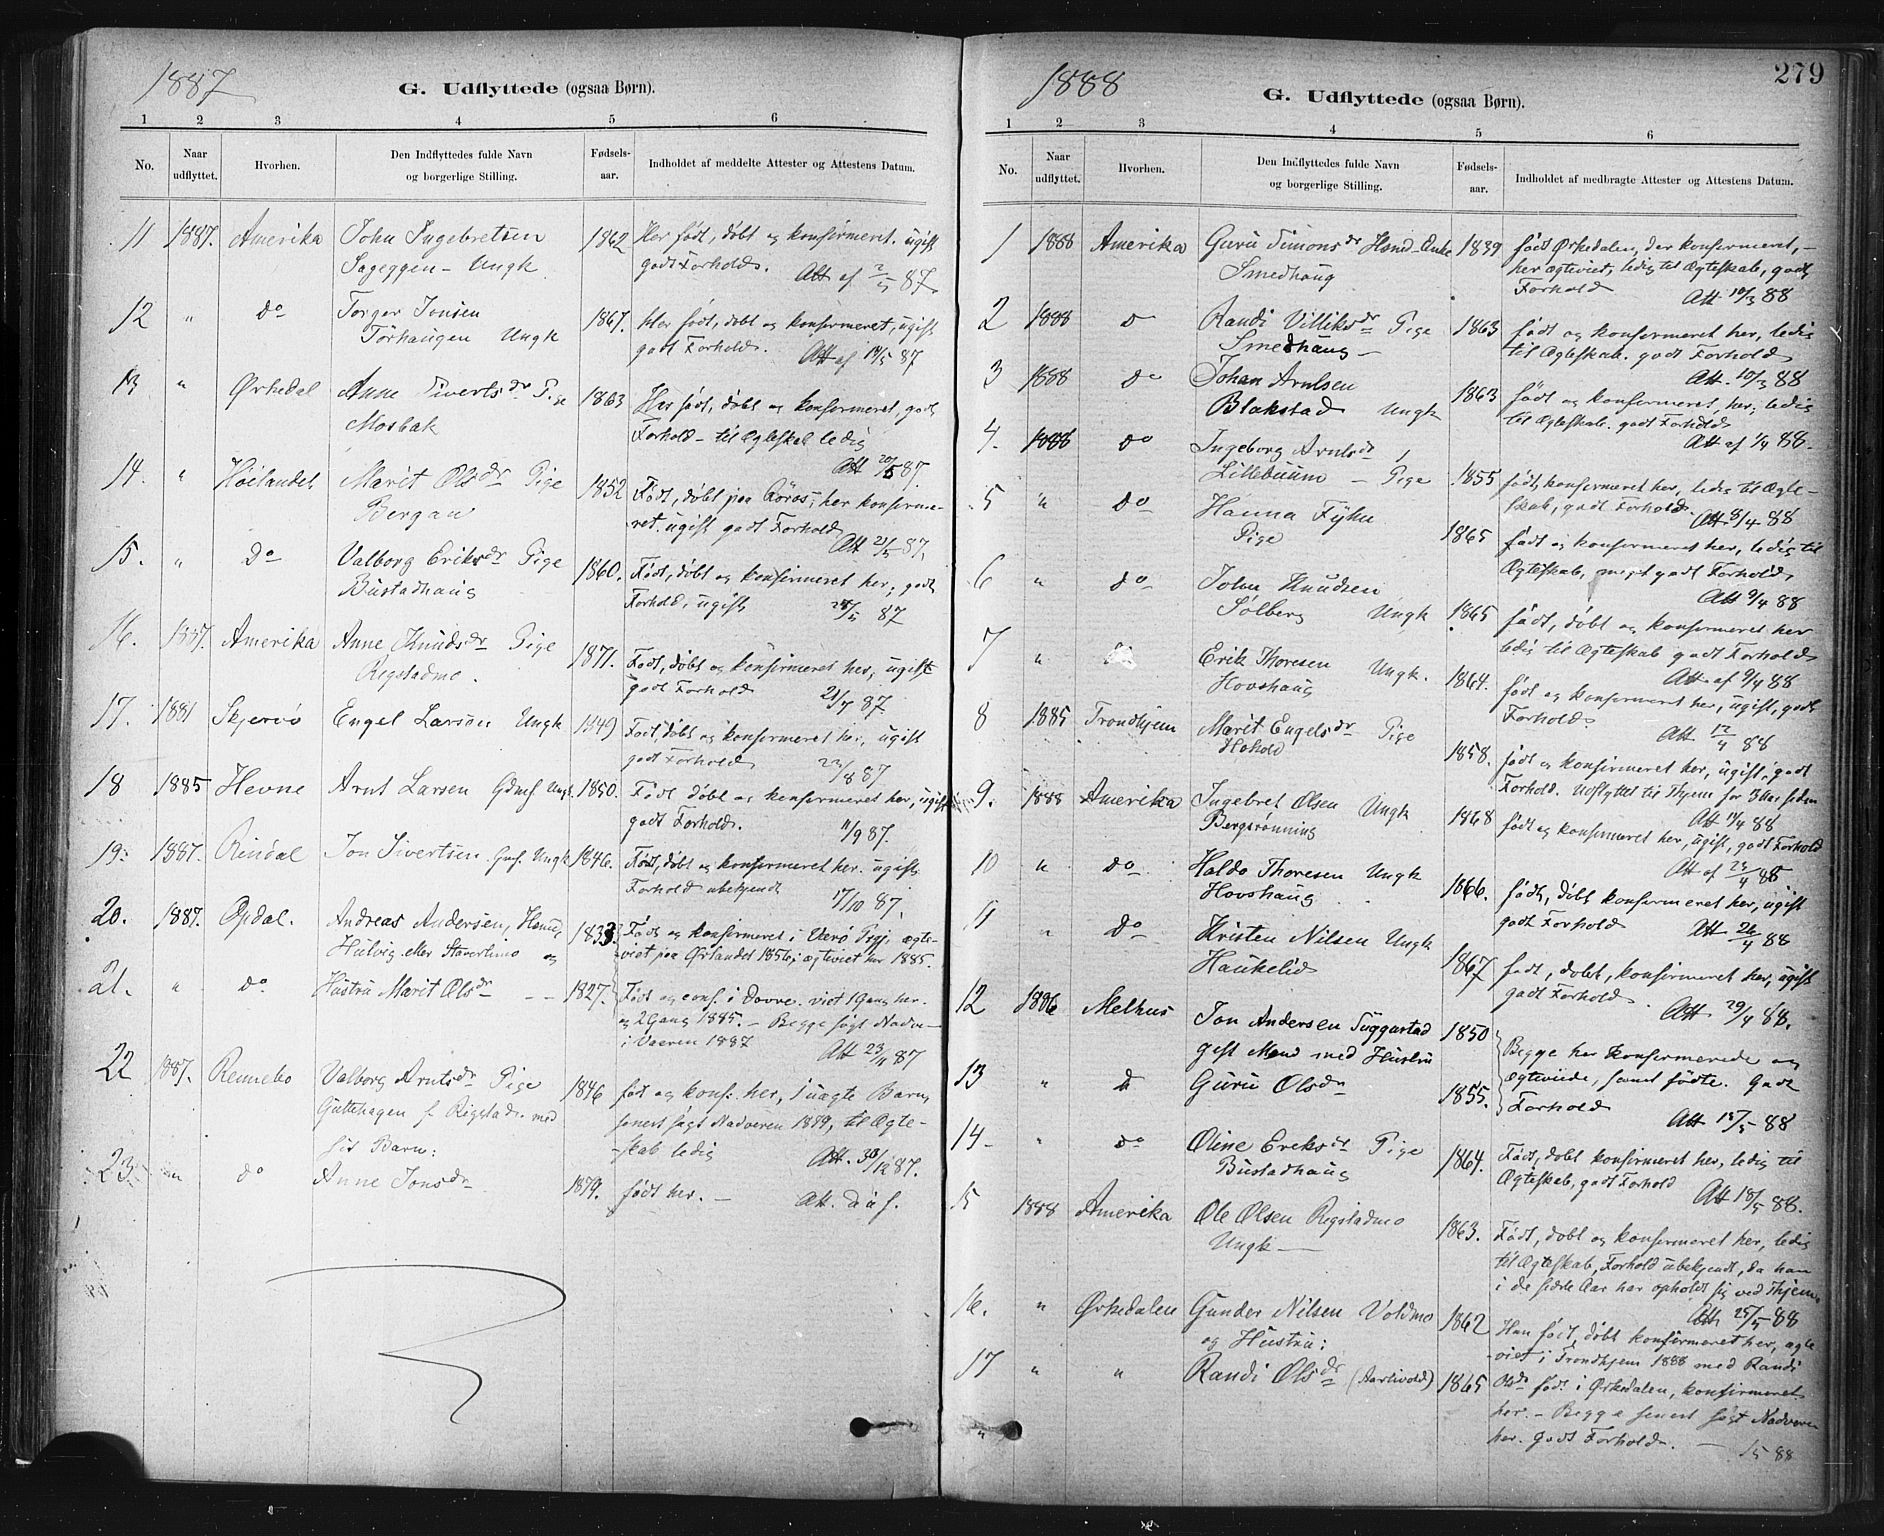 1887
G. Udflyttede (ogsaa Børn).
1 2 3 4 5 6
No. Naar udflyttet. Hvorhen. Den Indflyttedes fulde Navn og borgerlige Stilling. Fødsels-aar. Indholdet af meddelte Attester og Attestens Datum.
11 1887. Amerika John Ingebretsen 1862 Her født, døbt og konfirmeret. ugift
Sageggen - Ungk godt Forhold.
Att af 2/5 87.
12 " do Torger Jonsen 1867. Her født, døbt og konfirmeret, ugift
Torhaugen Ungk godt Forhold. Att af 14/5 87
13 " Ørkedal Anne Sivertsdr Pige 1863 Her født, døbt og konfirmeret, godt
Mosbak Forhold - til Ægteskab ledig
Att 20/5 87.
14. " Høilandet Marit Olsdr Pige 1852 Født, døbt paa Røros, her konfirme-
Bergan ret. ugift godt Forhold
Att 21/5 87.
15. " do Valborg Eriksdr Pige 1860. Født, døbt og konfirmeret her; godt
Bustadhaug Forhold, ugift 28/5 87
16. 1887. Amerika Anne Knudsdr Pige 1871. Født, døbt og konfirmeret her, ugift
Rigstadmo. godt Forhold 21/7 87.
17. 1881 Skjervø Engel Larsen Ungk 1849 Født, døbt og konfirmeret her, ugift
godt Forhold 23/8 87
18 1885 Hevne Arnt Larsen Gdmf Ungk. 1850. Født døbt og konfirmeret her, ugift
godt Forhold. 11/9 87.
19. 1887. Rindal Jon Sivertsen Ungk 1846. Født, døbt og konfirmeret her. ugift
Forhold ubekjendt 17/10 87.
20. 1887. Opdal. Andreas Andersen, 1833 Født og konfirmeret i Værø Prgj. ægte-
og viet paa Ørlandet 1856; ægteviet her 1885.
21. " do Hustru Marit Olsdr 1827. Født og conf. i Dovre. viet 1 Gang her.
og 2 Gang 1885. - Begge søgt Nadve-
i Vaaren 1887
Att 23/11 87
22 1887. Rennebo Valborg Arntsdr Pige 1846 fød og konf. her, 1 uægte Barn,
Guttehagen f. Rigstad. med senest søgt Nadveren 1879, til Ægte-
sit Barn: skab ledig Att. 30/12 87.
23. do Anne Jonsdr 1879. født her. - Att. d. a. f.
1888
279
G. Udflyttede (ogsaa Børn).
1 2 3 4 5 6
No. Naar udflyttet. Hvorhen. Den Indflyttedes fulde Navn og borgerlige Stilling. Fødsels-aar. Indholdet af medbragte Attester og Attestens Datum.
1 1888 Amerika Guru Simonsdr Hsmd. Enke 1839 født Ørkedalen, der konfirmeret, -
Smedhaug her ægteviet, ledig til Ægteskab, godt
Forhold Att 10/3 88
2 1888 do Randi Villiksdr Pige 1863 født og konfirmeret her, ledig
Smedhaug - til Ægteskab. godt Forhold
Att. 10/3 88
3 1888 do Johan Arntsen 1863 født og konfirmeret, her; ledig
Blakstad Ungk til Ægteskab. godt Forhold
Att af 1/4 88.
4. 1888 do Ingeborg Arntsdr
Lillebuum - Pige 1855 født, konfirmeret her, ledig til Ægte-
skab, godt Forhold.
Att 8/4 88
5 " do Hanna Fyhn
Pige 1865 født og konfirmeret her, ledig til
Ægteskab, meget godt Forhold
Att 9/4 88
6 " do John Knudsen
Solberg Ungk 1865 født, døbt og konfirmeret her
ledig til Ægteskab godt Forhold
Att af 9/4 88
7 " Erik Thoresen Ungk. 1864. født og konfirmeret her, ugift, godt
Hovshaug Forhold
Att 12/4 88
8 1885 Trondhjem Marit Engelsdr Pige 1858. født og konfirmeret her, ugift, godt
Hohold Forhold. Udflyttet til Thjem for 3 Aar siden
Att 14/4 88
9. 1888 Amerika Ingebret Olsen Ungk 1868 født og konfirmeret her, ugift, godt Forhold
Bergsrønning Att af 23/4 88
10 " do Haldo Thoresen Ungk 1866. født, døbt konfirmeret her, ugift
Hovshaug godt Forhold Att 26/4 88
11 " do Kristen Nilsen Ungk 1867 født, døbt, konfirmeret her, ugift
Haukelid godt Forhold. Att 29/4 88.
12 1886 Melhus Jon Andersen Tuggarstad 1850 Begge her konfirmerede og
gift Mand med Hustru ægteviede, samt fødte. Godt
13 " d Guru Olsdr 1855. Forhold
Att 18/5 88
14 " do Oline Eriksdr Pige 1864. Født, døbt konfirmeret her, ledig til
Bustadhaug Ægteskab, godt Forhold
Att 18/5 88.
15 1888 Amerika Ole Olsen Rigstadmo 1863. Født, døbt og konfirmeret her, ledig
Ungk - til Ægteskab, Forhold ubekjendt, da han
i de sidste Aar har opholdt sig ved Thjem.
Att 25/5 88
16. " Ørkedalen Gunder Nilsen Voldmo 1862 Han født, døbt konfirmeret her, ægte
og Hustru: viet i Trondhjem 1888 med Randi
17 " " Randi Olsdr (Aarlivold) 1865 Olsdr født i Ørkedalen, konfirmeret
her. - Begge senest søgt Nadveren
her. godt Forhold. -
88